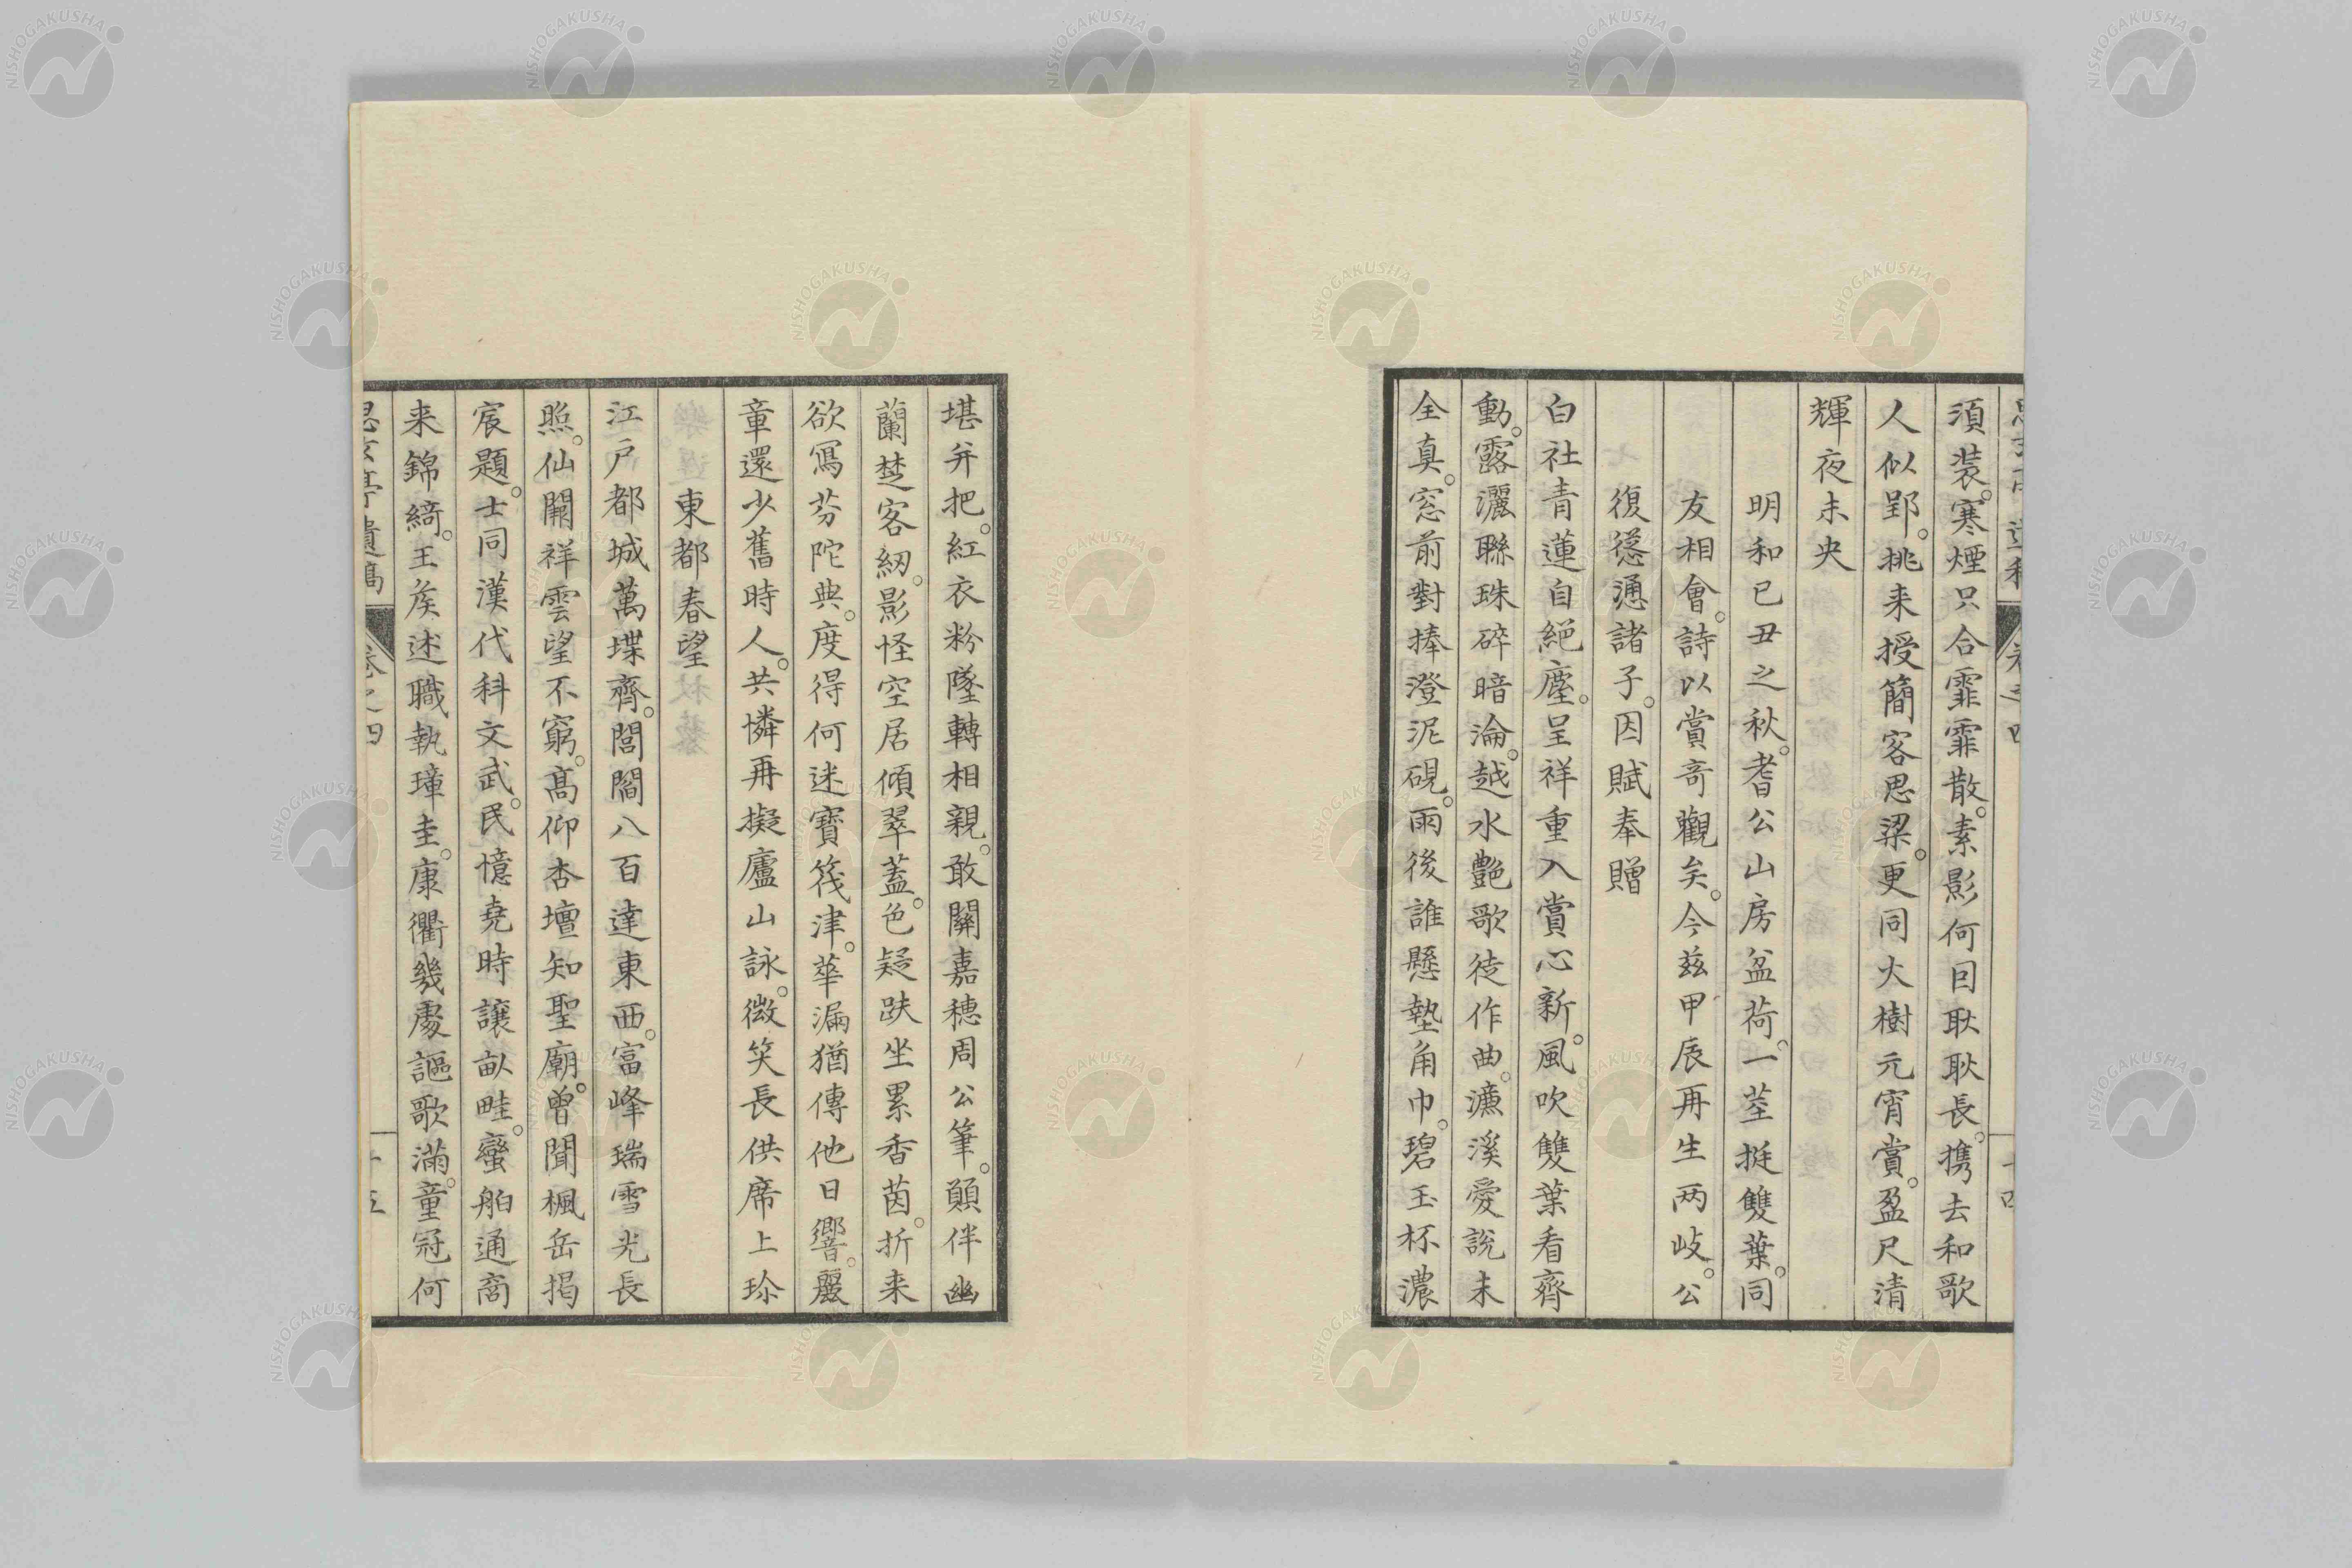 須装。寒煙只合霏霏散。素影何曰耿耿長。携去和歌
人似郢。挑来授簡客思梁。更同大樹元宵賞。盈尺清
輝夜未央
明和己丑之秋。耆公山房盆荷。一莖挺雙葉。同
友相會。詩以賞奇觀矣。今茲甲辰再生两岐。公
復慫慂諸子。因賦奉贈
白社青蓮自絕塵。呈祥重入賞心新。風吹雙葉看齊
動。露灑聯珠碎暗淪。越水艶歌徒作曲。濂溪愛說未
全真。窓前對捧澄泥硯。雨後誰懸墊角巾。碧玉杯濃
堪并把。紅衣粉墜轉相親。敢關嘉穗周公筆。願伴幽
蘭楚客紉。影怪空居傾翠蓋。色疑趺坐累香茵。折来
欲寫芬陀典。度得何迷寶筏津。華漏猶傳他日響。麗
章還少舊時人。共憐再擬廬山詠。微笑長供席上珍
東都春望
江戸都城萬堞齊。閭閻八百達東西。富峰瑞雪光長
照。仙闕祥雲望不窮。髙仰杏壇知聖廟。曽聞楓岳揭
宸題。士同漢代科文武。民憶堯時讓畝畦。蠻舶通商
来錦綺。王矦述職執璋圭。康衢幾處謳歌滿。童冠何
卷之四